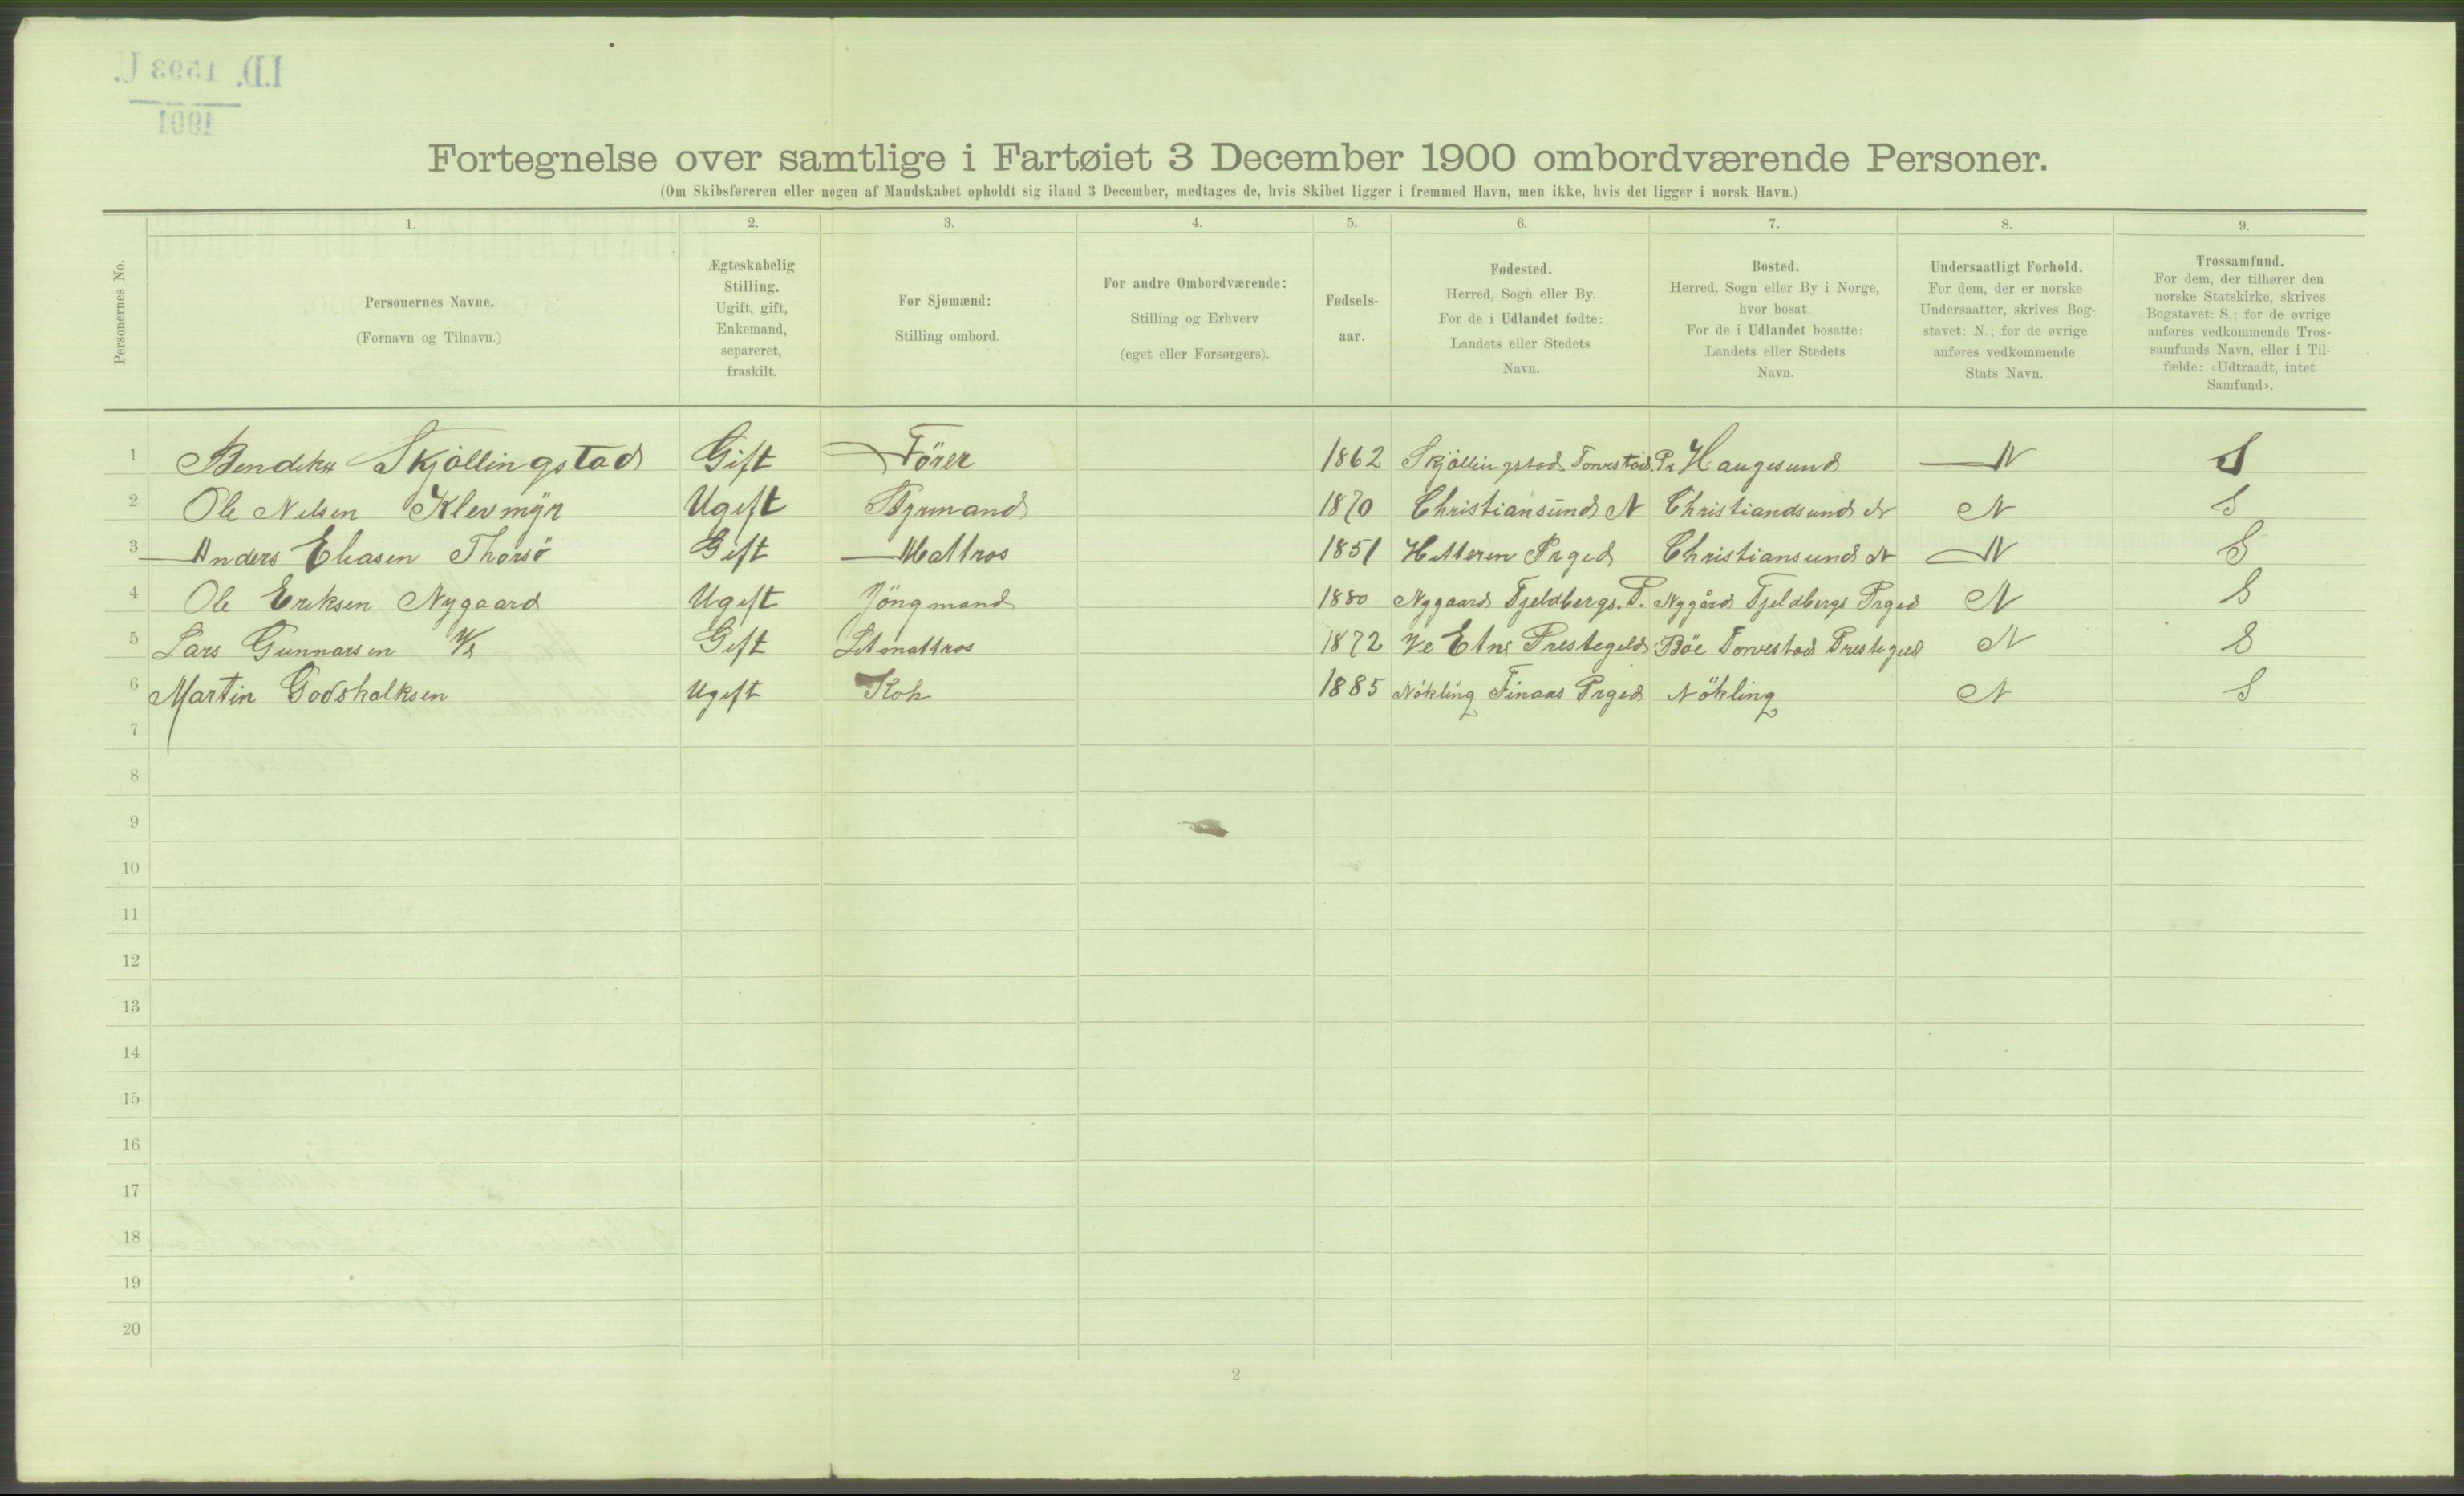 I.D. 1593 U.
1901
Fortegnelse over samtlige i Fartøiet 3 December 1900 ombordværende Personer.
(Om Skibsføreren eller nogen af Mandskabet opholdt sig iland 3 December, medtages de, hvis Skibet ligger i fremmed Havn, men ikke, hvis det ligger i norsk Havn.)
Personernes No.
1.
Personernes Navne.
(Fornavn og Tilnavn.)
2.
Ægteskabelig
Stilling.
Ugift, gift,
Enkemand,
separeret,
fraskilt.
3.
For Sjømænd:
Stilling ombord.
4.
For andre Ombordværende:
Stilling og Erhverv
(eget eller Forsørgers).
5.
Fødsels-
aar.
6.
Fødested.
Herred, Sogn eller By.
For de i Udlandet fødte:
Landets eller Stedets
Navn.
7.
Bosted.
Herred, Sogn eller By i Norge,
hvor bosat.
For de i Udlandet bosatte:
Landets eller Stedets
Navn.
8.
Undersaatligt Forhold.
For dem, der er norske
Undersaatter, skrives Bog-
stavet: N.; for de øvrige
anføres vedkommende
Stats Navn.
9.
Trossamfund.
For dem, der tilhører den
norske Statskirke, skrives
Bogstavet: S.; for de øvrige
anføres vedkommende Tros-
samfunds Navn, eller i Til-
fælde: «Udtraadt, intet
Samfund».
1 Skjöllingstad Gift Förer 1862 Skjöllingstad Torvestad Pr Haugesund N S
2 Ole Nilsen Klevmyr Ugift Styrmand 1870 Christiansund N Christiandsund N N S
3 Anders Eliasen Thorsö Gift Mattros 1851 Hitteren Prged Christiansund N N S
4 Ole Eriksen Nygaard Ugift Jöngmand 1880 Nygaard Tjeldbergs. P. Nygård Tjeldbergs Prged N S
5 Lars Gunnarsen Ve Gift Letmattros 1872 Ve Etne Prestegeld Böe Torvestad Prestegeld N S
6 Martin Godskalksen Ugift Kok 1885 Nökling Finaas Prged Nökling N S
7
8
9
10
11
12
13
14
15
16
17
18
19
20
2